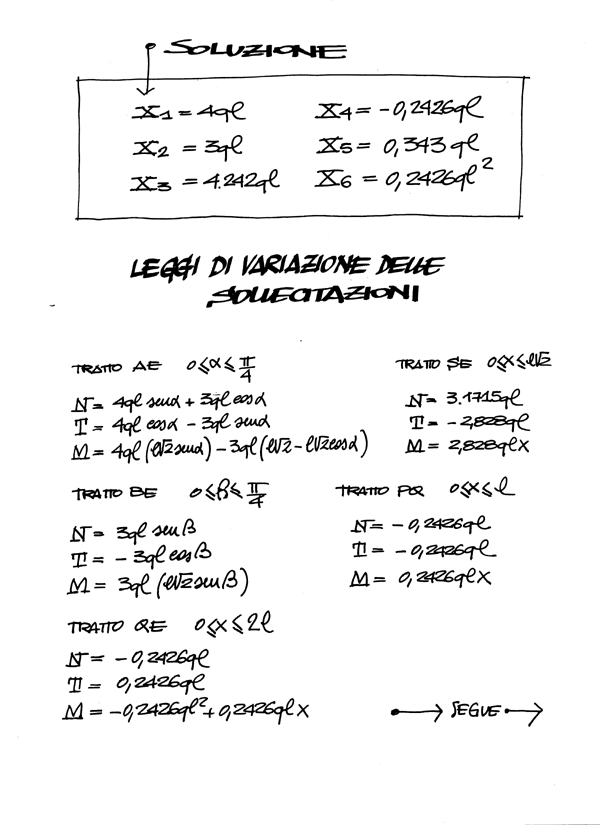 SOLUZIONE
X1 = 4ql
X4 = -0,2426ql
X2 = 3ql
X5 = 0,343 ql
X3 = 4.242ql
X6 = 0,2426ql²
LEGGI DI VARIAZIONE DELLE
SOLLECITAZIONI
TRATTO AE 0⩽α⩽π/4
N = 4ql senα + 3ql cosα
T = 4ql cosα - 3ql senα
M = 4ql (l√2 senα) - 3ql (l√2 - l√2 cosα)
TRATTO SE 0⩽x⩽l√2
N = 3.1715ql
T = -2,828ql
M = 2,828qlx
TRATTO BE 0⩽β⩽π/4
N = 3ql senβ
T = - 3ql cosβ
M = 3ql (l√2 senβ)
TRATTO PQ 0⩽x⩽l
N = -0,2426ql
T = -0,2426ql
M = 0,2426qlx
TRATTO QE 0⩽x⩽2l
N = -0,2426ql
T = 0,2426ql
M = -0,2426ql² + 0,2426qlx
SEGUE